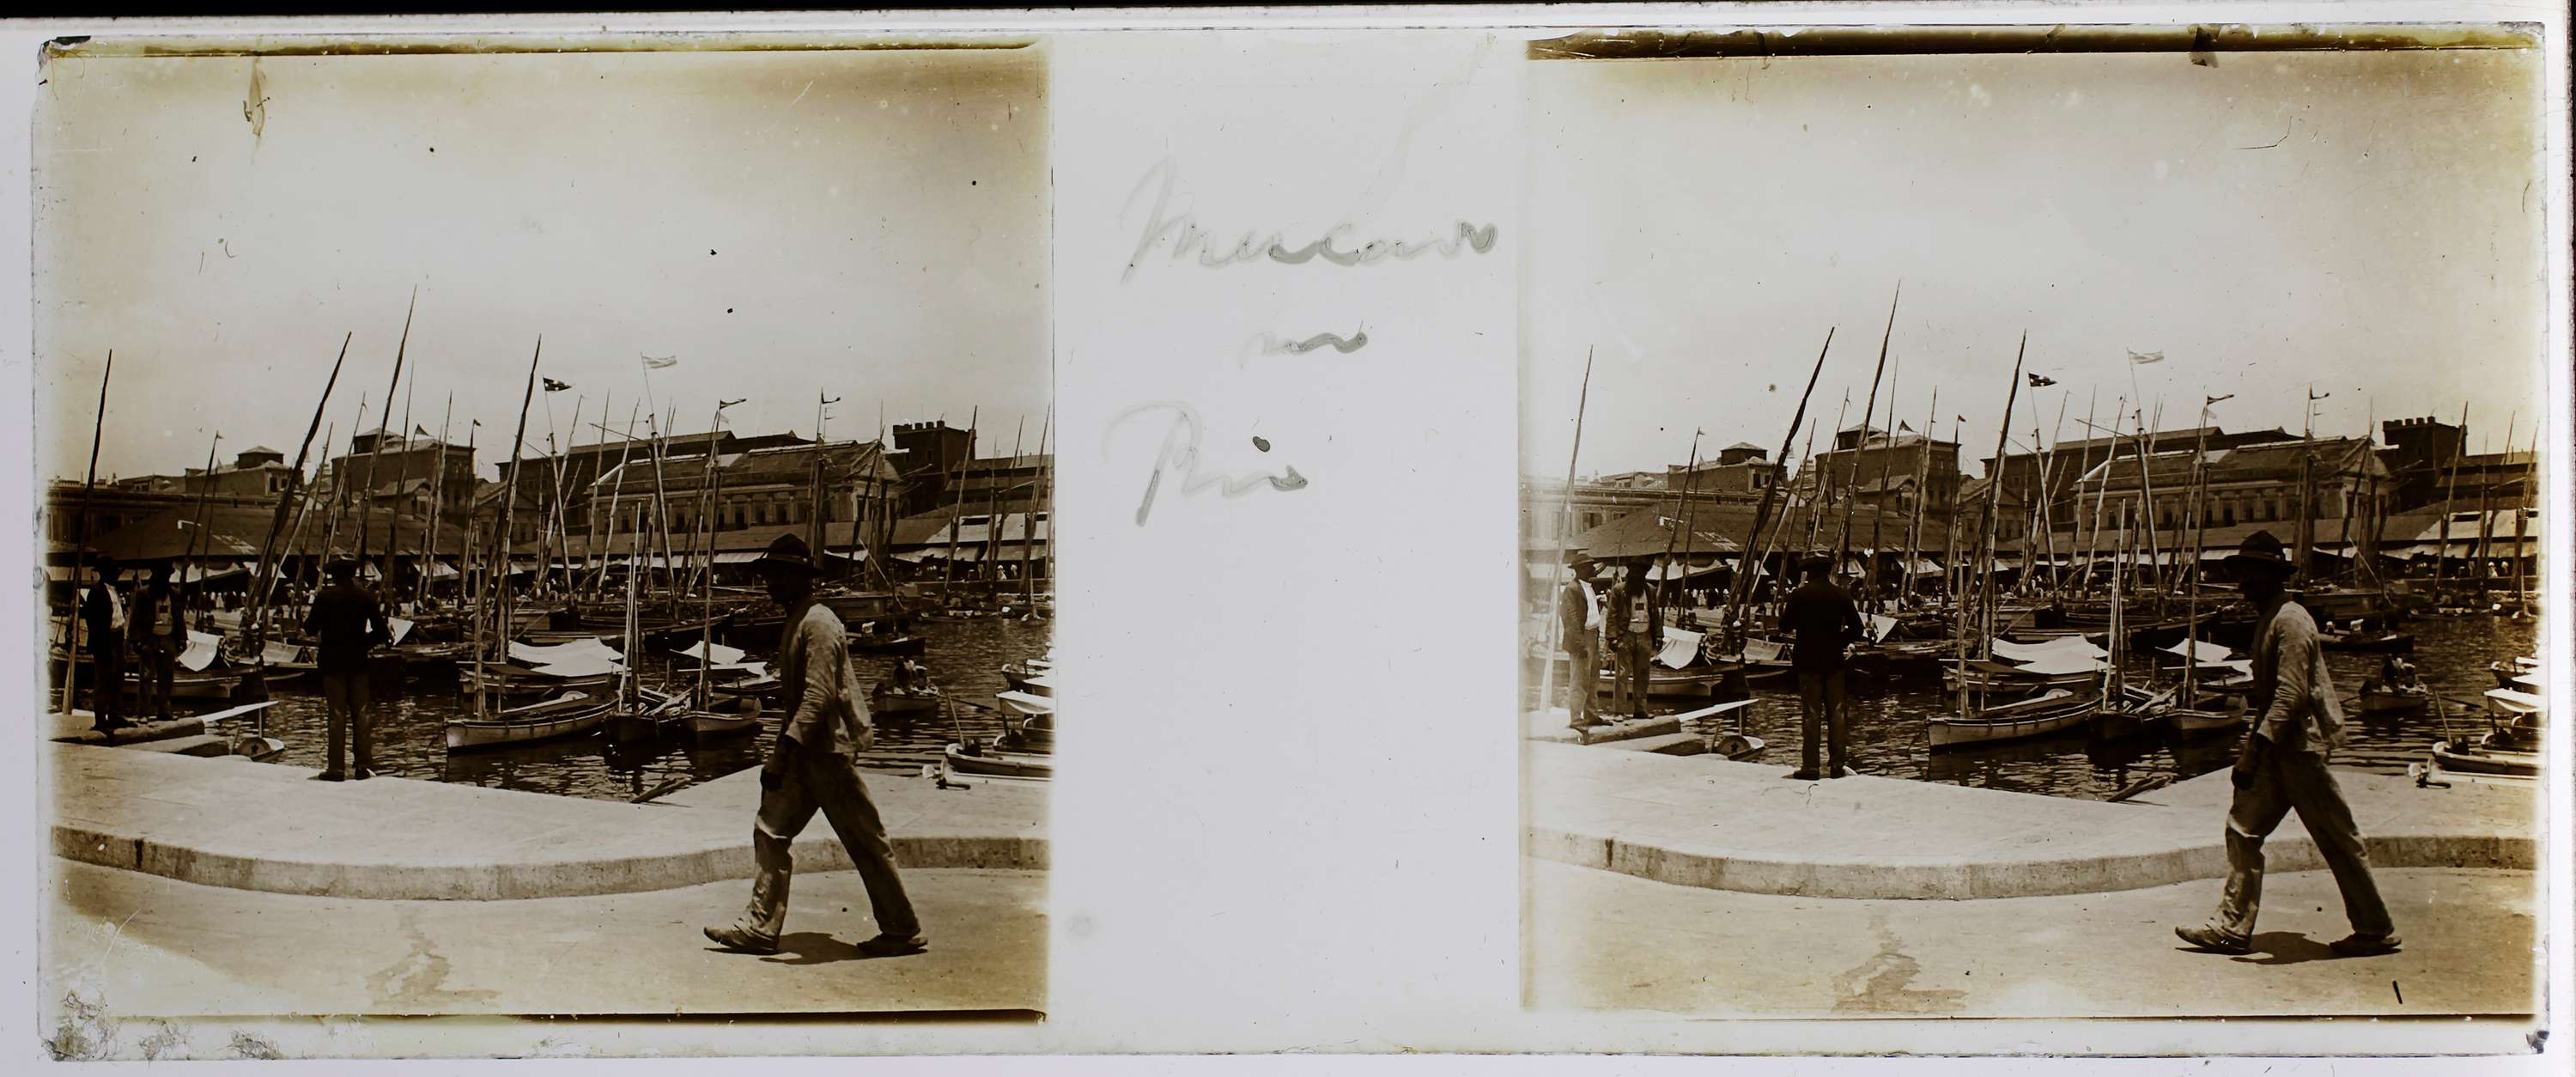 Mercado
no
Rio